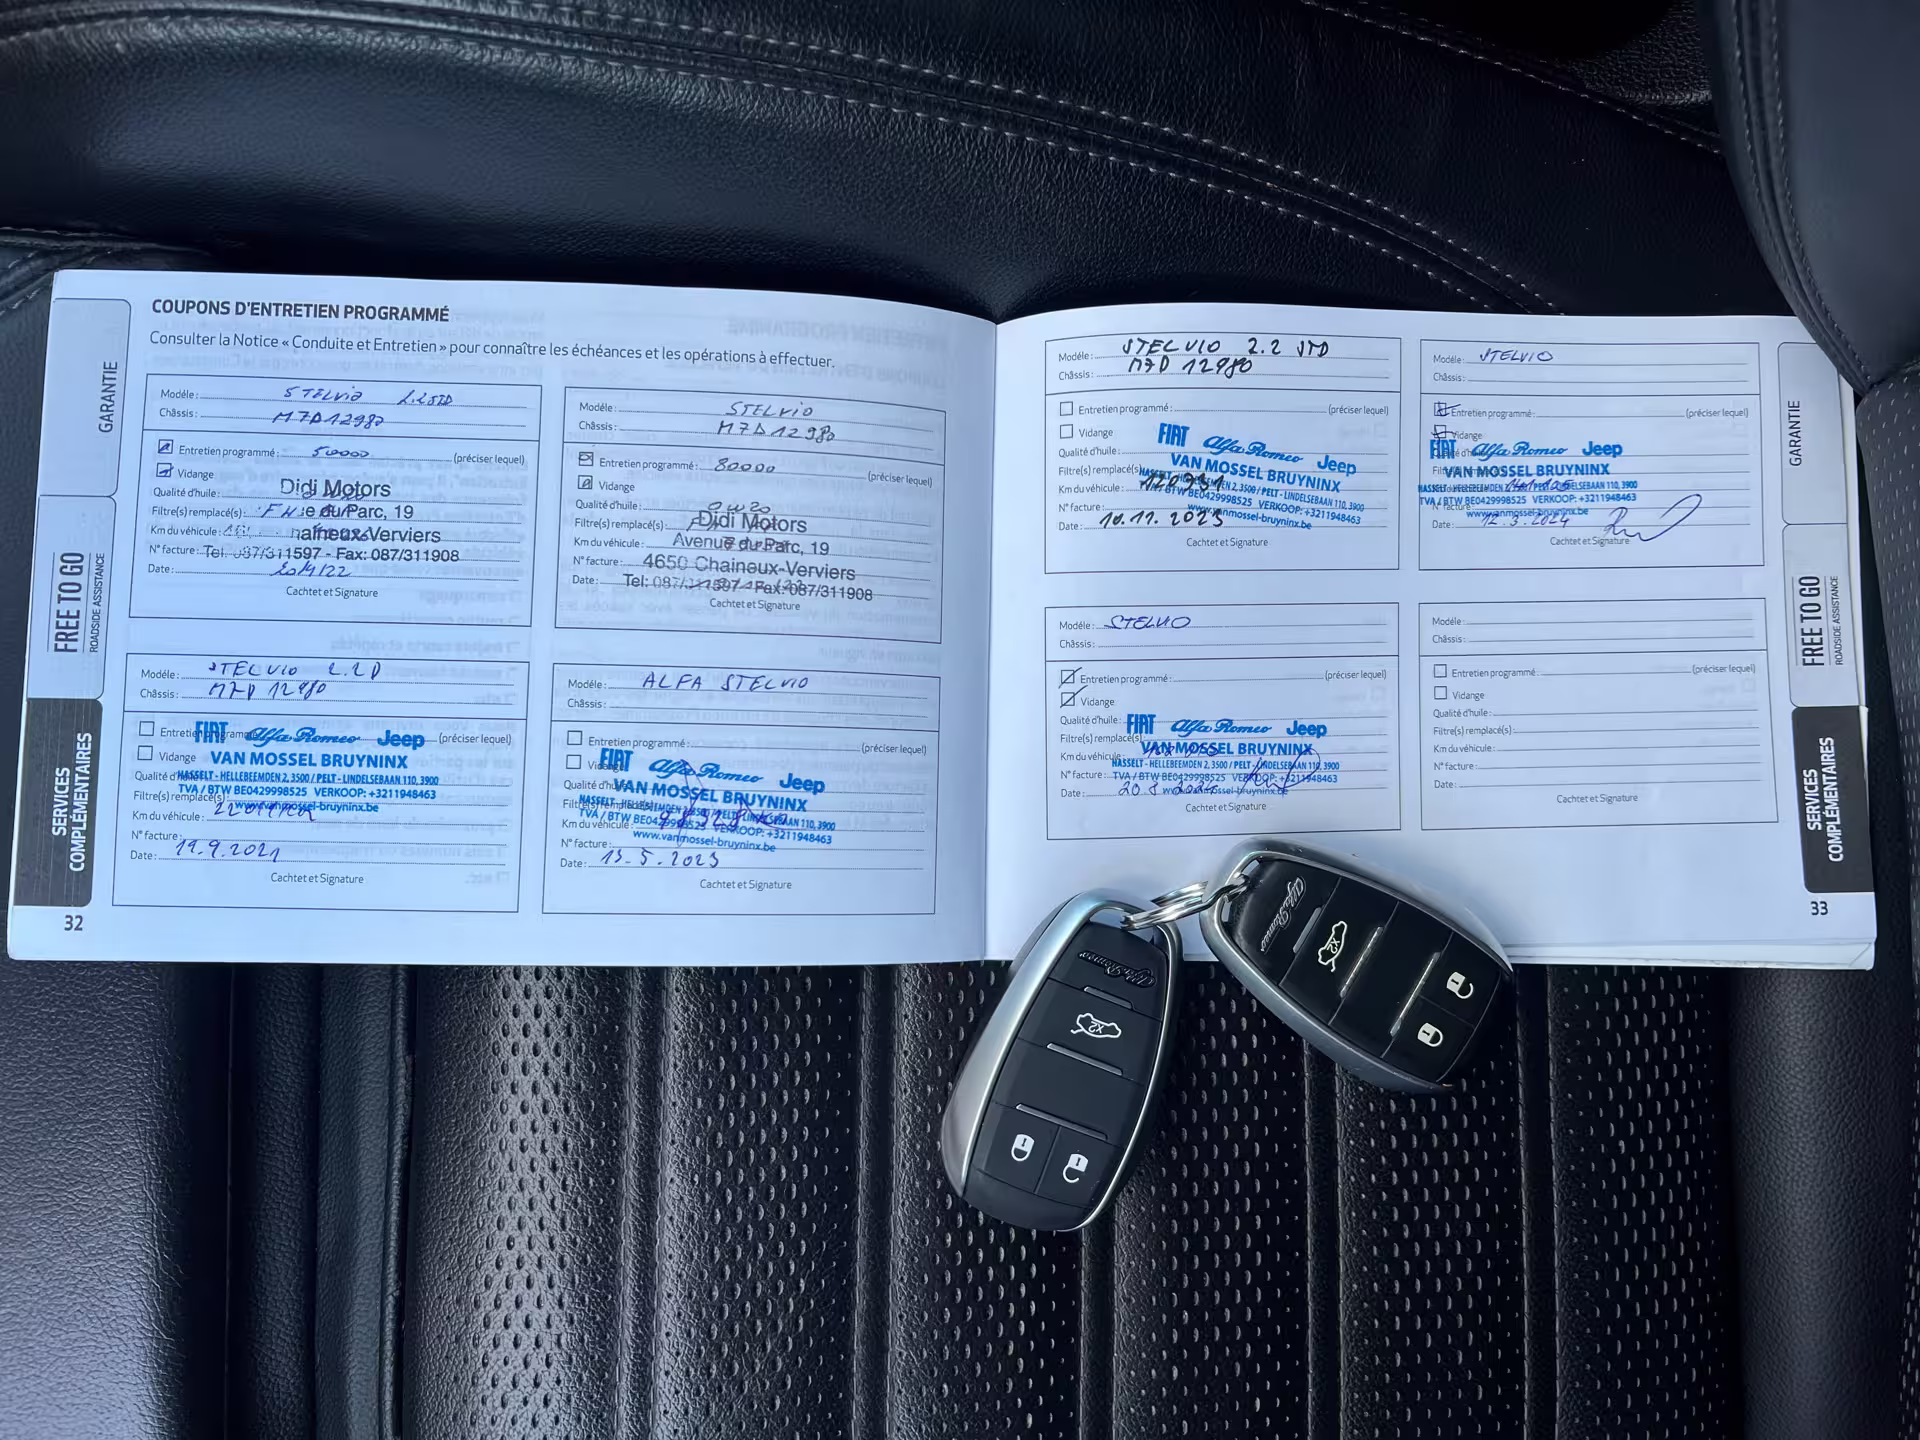 COUPONS D'ENTRETIEN PROGRAMMÉ
Consulter la Notice « Conduite et Entretien » pour connaître les échéances et les opérations à effectuer.
GARANTIE
FREE TO GO
ROADSIDE ASSISTANCE
SERVICES
COMPLÉMENTAIRES
32
Modéle: STELVIO 2.2STD
Châssis: M7D12980
Entretien programmé: 50000 (préciser lequel)
Vidange
Qualité d'huile:
Didi Motors
Filtre(s) remplacé(s):
Parc, 19
Km du véhicule:
Verviers
N° facture:
Tel: 087/311597 - Fax: 087/311908
Date:
Cachtet et Signature
Modéle: STELVIO
Châssis: M7D12980
Entretien programmé: 80000 (préciser lequel)
Vidange
Qualité d'huile: 0W20
Filtre(s) remplacé(s):
Didi Motors
Km du véhicule:
Avenue du Parc, 19
N° facture:
4650 Chaineux-Verviers
Date:
Tel: 087/311597 - Fax: 087/311908
Cachtet et Signature
Modéle: STELVIO 2.2D
Châssis: M7D 12980
Entretien programmé (préciser lequel)
FIAT Alfa Romeo Jeep
Vidange
VAN MOSSEL BRUYNINX
HASSELT - HELLEBEEMDEN 2, 3500 / PELT - LINDELSEBAAN 110, 3900
TVA / BTW BE0429998525 VERKOOP: +3211948463
Filtre(s) remplacé(s):
www.vanmossel-bruyninx.be
Km du véhicule:
N° facture:
Date: 19.9.2021
Cachtet et Signature
Modéle: ALFA STELVIO
Châssis:
Entretien programmé: (préciser lequel)
FIAT Alfa Romeo Jeep
VAN MOSSEL BRUYNINX
HASSELT - HELLEBEEMDEN 2, 3500 / PELT - LINDELSEBAAN 110, 3900
TVA / BTW BE0429998525 VERKOOP: +3211948463
Km du véhicule:
www.vanmossel-bruyninx.be
N° facture:
Date: 15.5.2023
Cachtet et Signature
Modéle: STELVIO 2.2 STD
Châssis: M7D 12980
Entretien programmé: (préciser lequel)
Vidange
FIAT Alfa Romeo Jeep
Qualité d'huile:
VAN MOSSEL BRUYNINX
Filtre(s) remplacé(s)
HASSELT - HELLEBEEMDEN 2, 3500 / PELT - LINDELSEBAAN 110, 3900
Km du véhicule: 120931
TVA / BTW BE0429998525 VERKOOP: +3211948463
N° facture:
www.vanmossel-bruyninx.be
Date: 10.11.2023
Cachtet et Signature
Modéle: STELVIO
Châssis:
Entretien programmé: (préciser lequel)
Vidange
FIAT Alfa Romeo Jeep
VAN MOSSEL BRUYNINX
HASSELT - HELLEBEEMDEN 2, 3500 / PELT - LINDELSEBAAN 110, 3900
TVA / BTW BE0429998525 VERKOOP: +3211948463
www.vanmossel-bruyninx.be
Date: 12.3.2024
Cachtet et Signature
Modéle: STELVIO
Châssis:
Entretien programmé: (préciser lequel)
Vidange
Qualité d'huile:
FIAT Alfa Romeo Jeep
Filtre(s) remplacé(s)
VAN MOSSEL BRUYNINX
Km du véhicule
HASSELT - HELLEBEEMDEN 2, 3500 / PELT - LINDELSEBAAN 110, 3900
N° facture:
TVA / BTW BE0429998525 VERKOOP: +3211948463
Date: 20.8.2024
www.vanmossel-bruyninx.be
Cachtet et Signature
Modéle:
Châssis:
Entretien programmé: (préciser lequel)
Vidange
Qualité d'huile:
Filtre(s) remplacé(s):
Km du véhicule:
N° facture:
Date:
Cachtet et Signature
GARANTIE
FREE TO GO
ROADSIDE ASSISTANCE
SERVICES
COMPLÉMENTAIRES
33
Alfa Romeo
x2
Alfa Romeo
x2